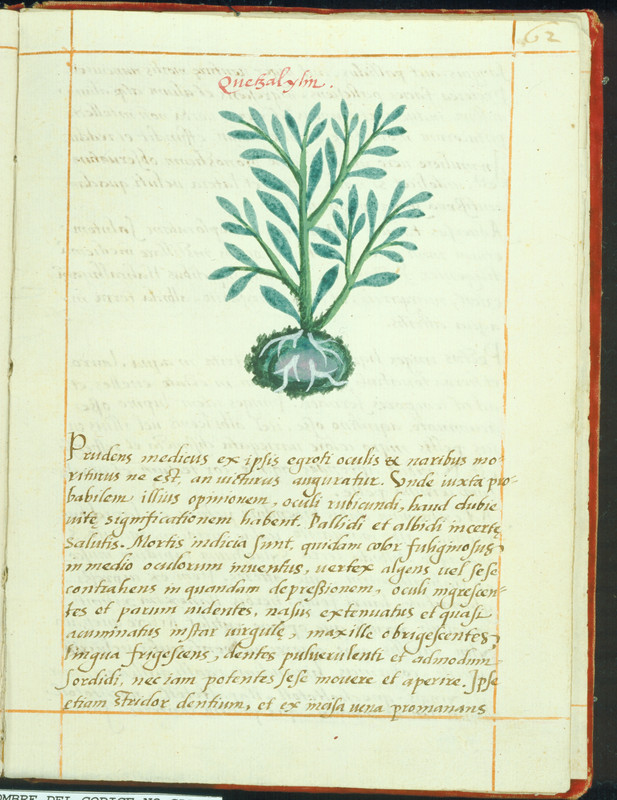 62
Quetzalylin.
Prudens medicus ex ipsis egroti oculis & naribus mo-
riturus ne est, an uicturus auguratur. Unde iuxta pro-
babilem illius opinionem, oculi rubicundi, haud dubie
uitę significationem habent. Pallidi et albidi incertę
salutis. Mortis indicia sunt, quidam color fuliginosus
in medio oculorum inuentus, uertex algens uel sese
contrahens in quandam depreßionem, oculi nigrescen-
tes et parum nidentes, nasus extenuatus et quasi
acuminatus instar uirgulę, maxille obrigescentes,
lingua frigescens, dentes puluerulenti et admodum
sordidi, nec iam potentes sese mouere et aperire. Ipse
etiam stridor dentium, et ex incisa uena promanans
NOMBRE DEL CODICE